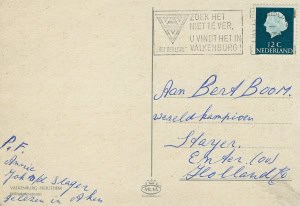 ZOEK HET
NIET VE VER,
U VINDT HET IN
VALKENBURG!
12 C
NEDERLAND
Aan Bert Boom.
wereld kampioen
Stayer
Enter (ov)
Holland
P.F.
Annie
Jak Slager
gelezen in Aken
VALKENBURG-HOUTHEM